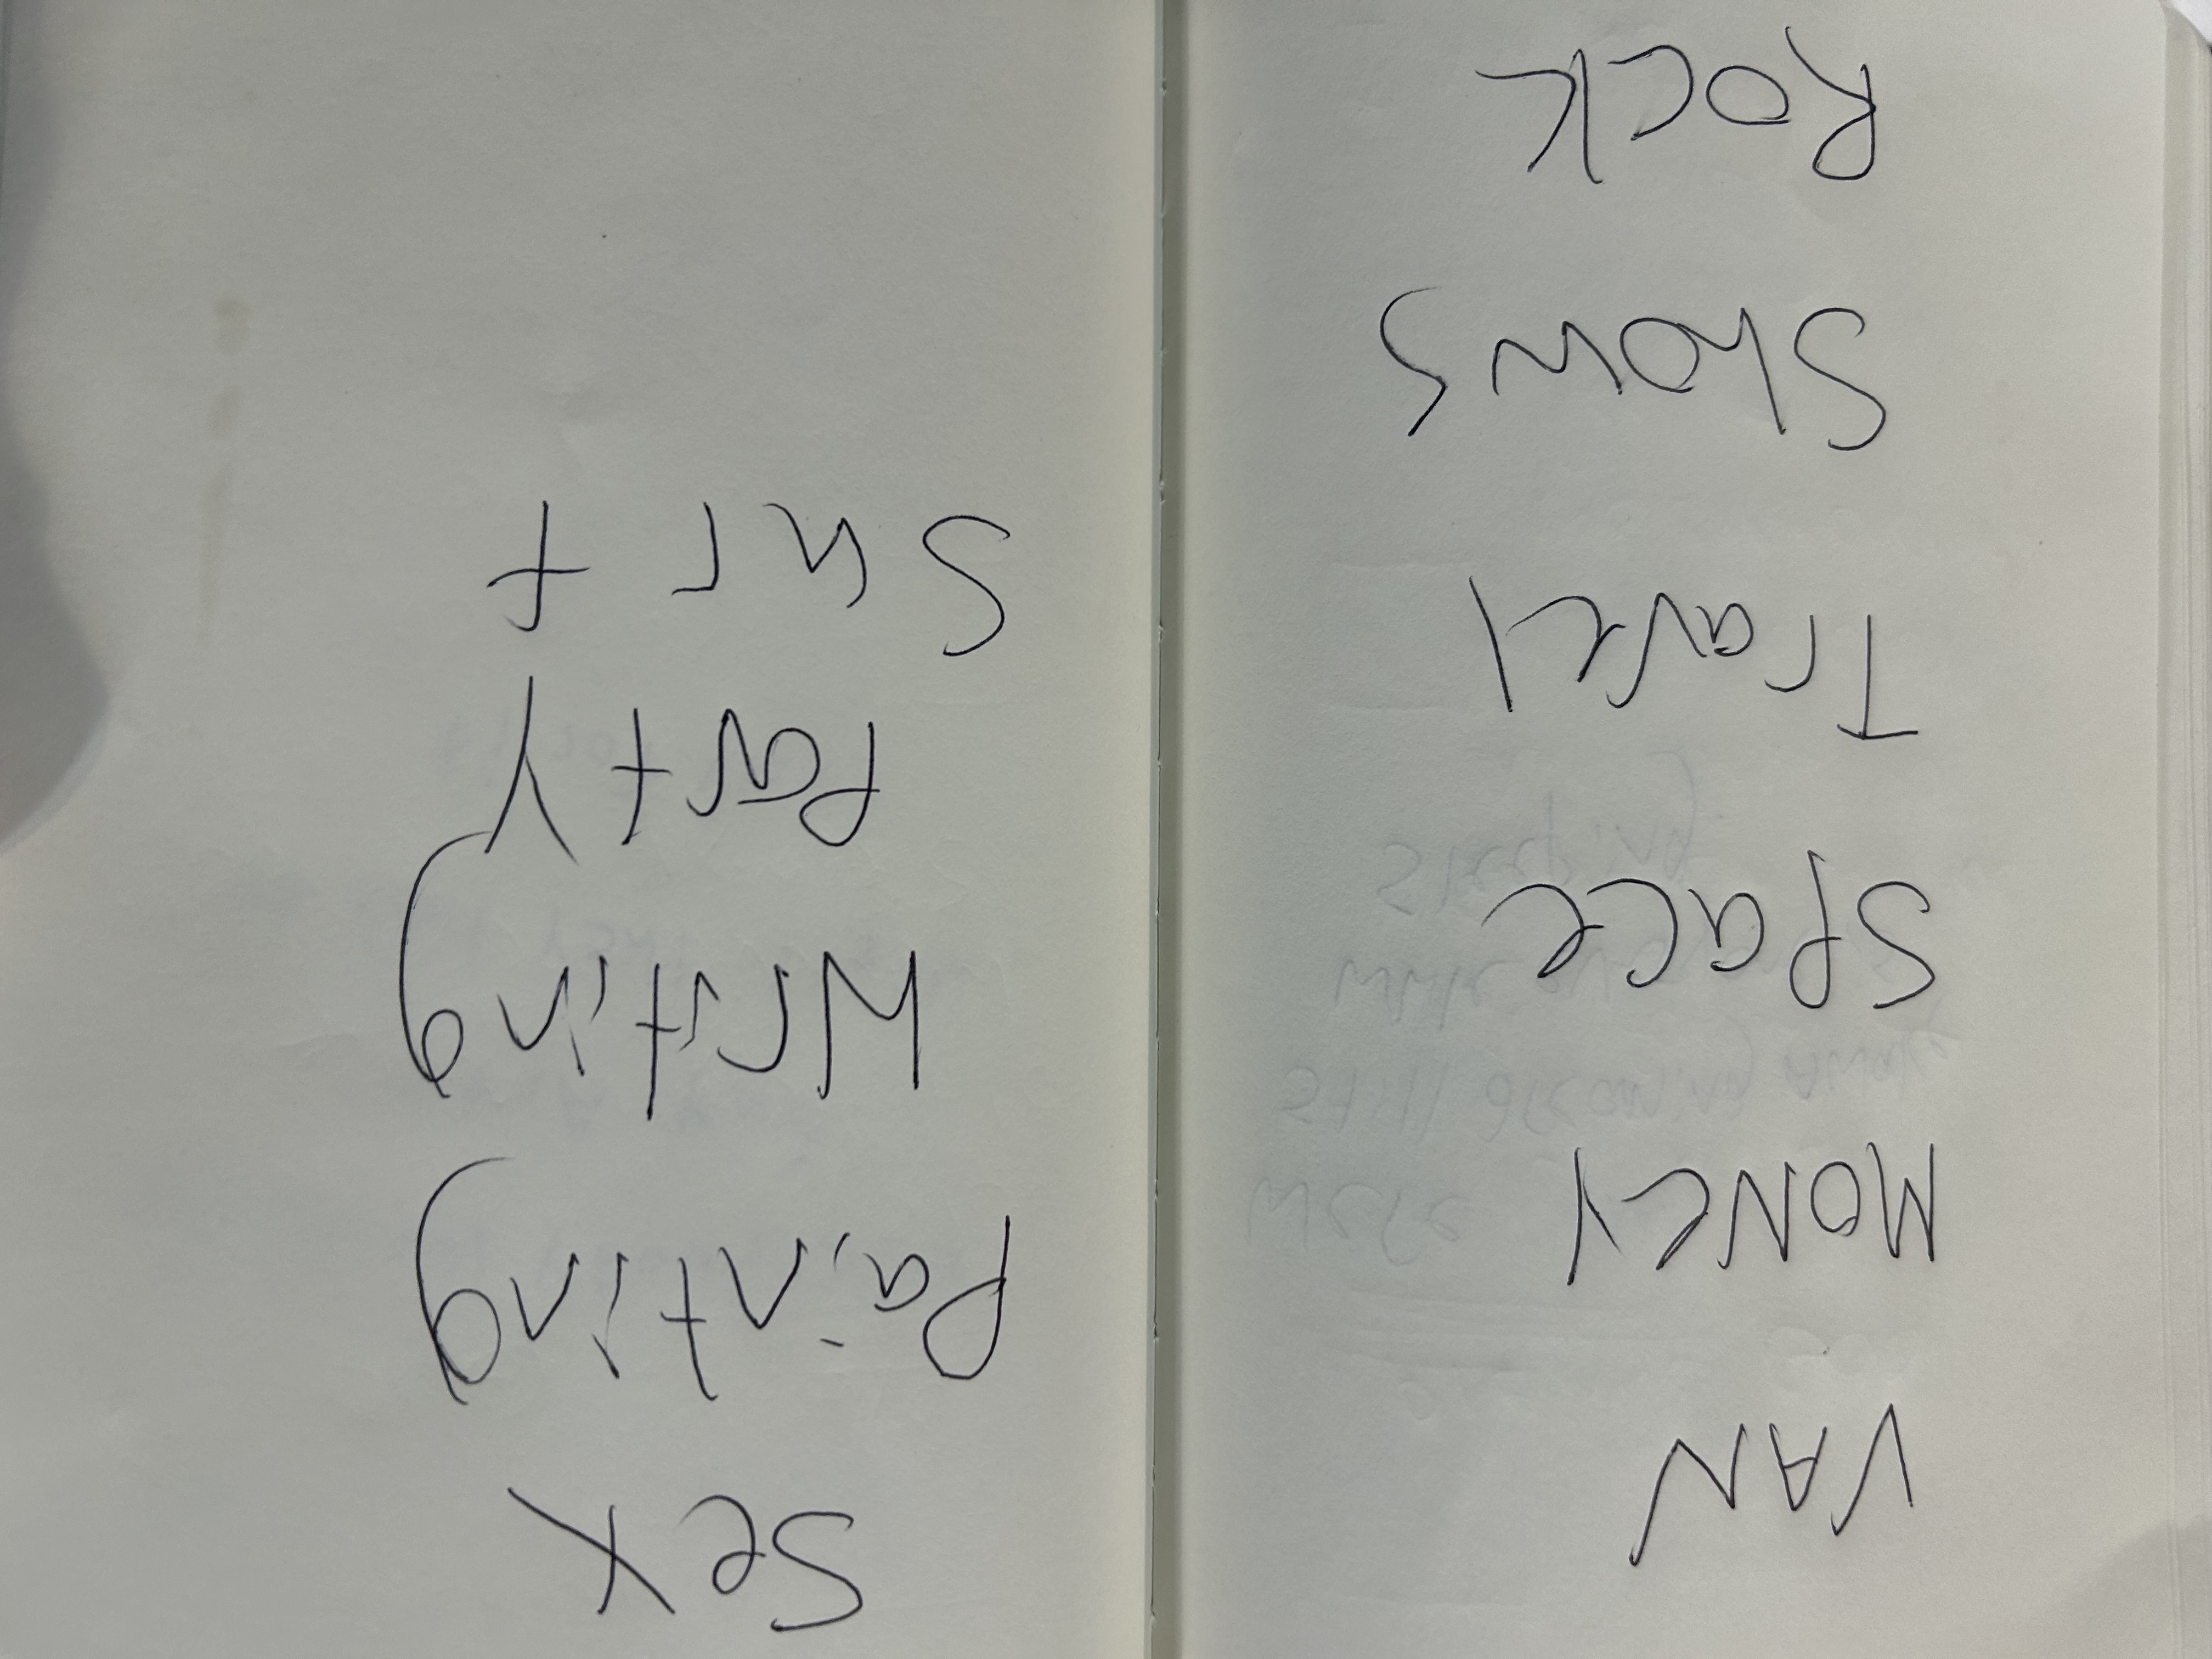 VAN
MONEY
Space
Travel
Shows
Rock
Sex
Painting
Writing
Party
Surf